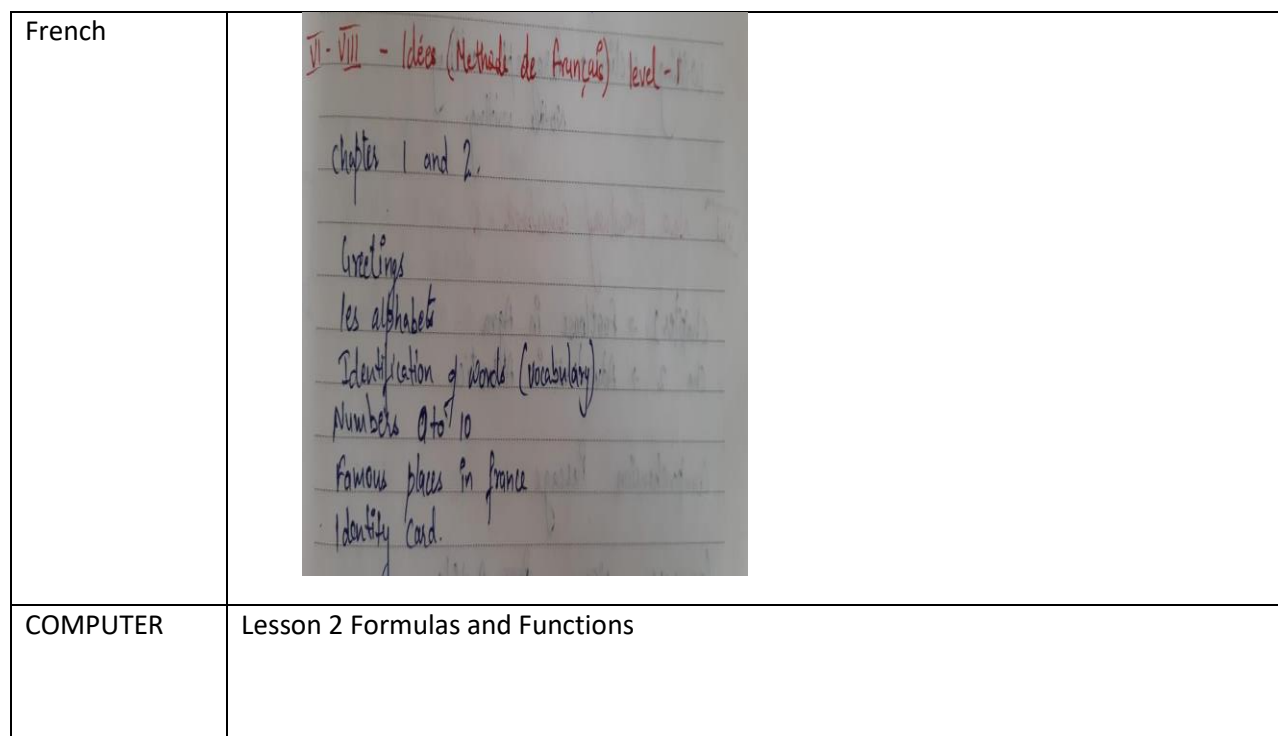 French
VI - VIII - Idées (Methode de français) level - 1
Chapter 1 and 2.
Greetings
les alphabets
Identification of words (vocabulary).
Numbers 0 to 10
Famous places in france
Identity Card.
COMPUTER
Lesson 2 Formulas and Functions